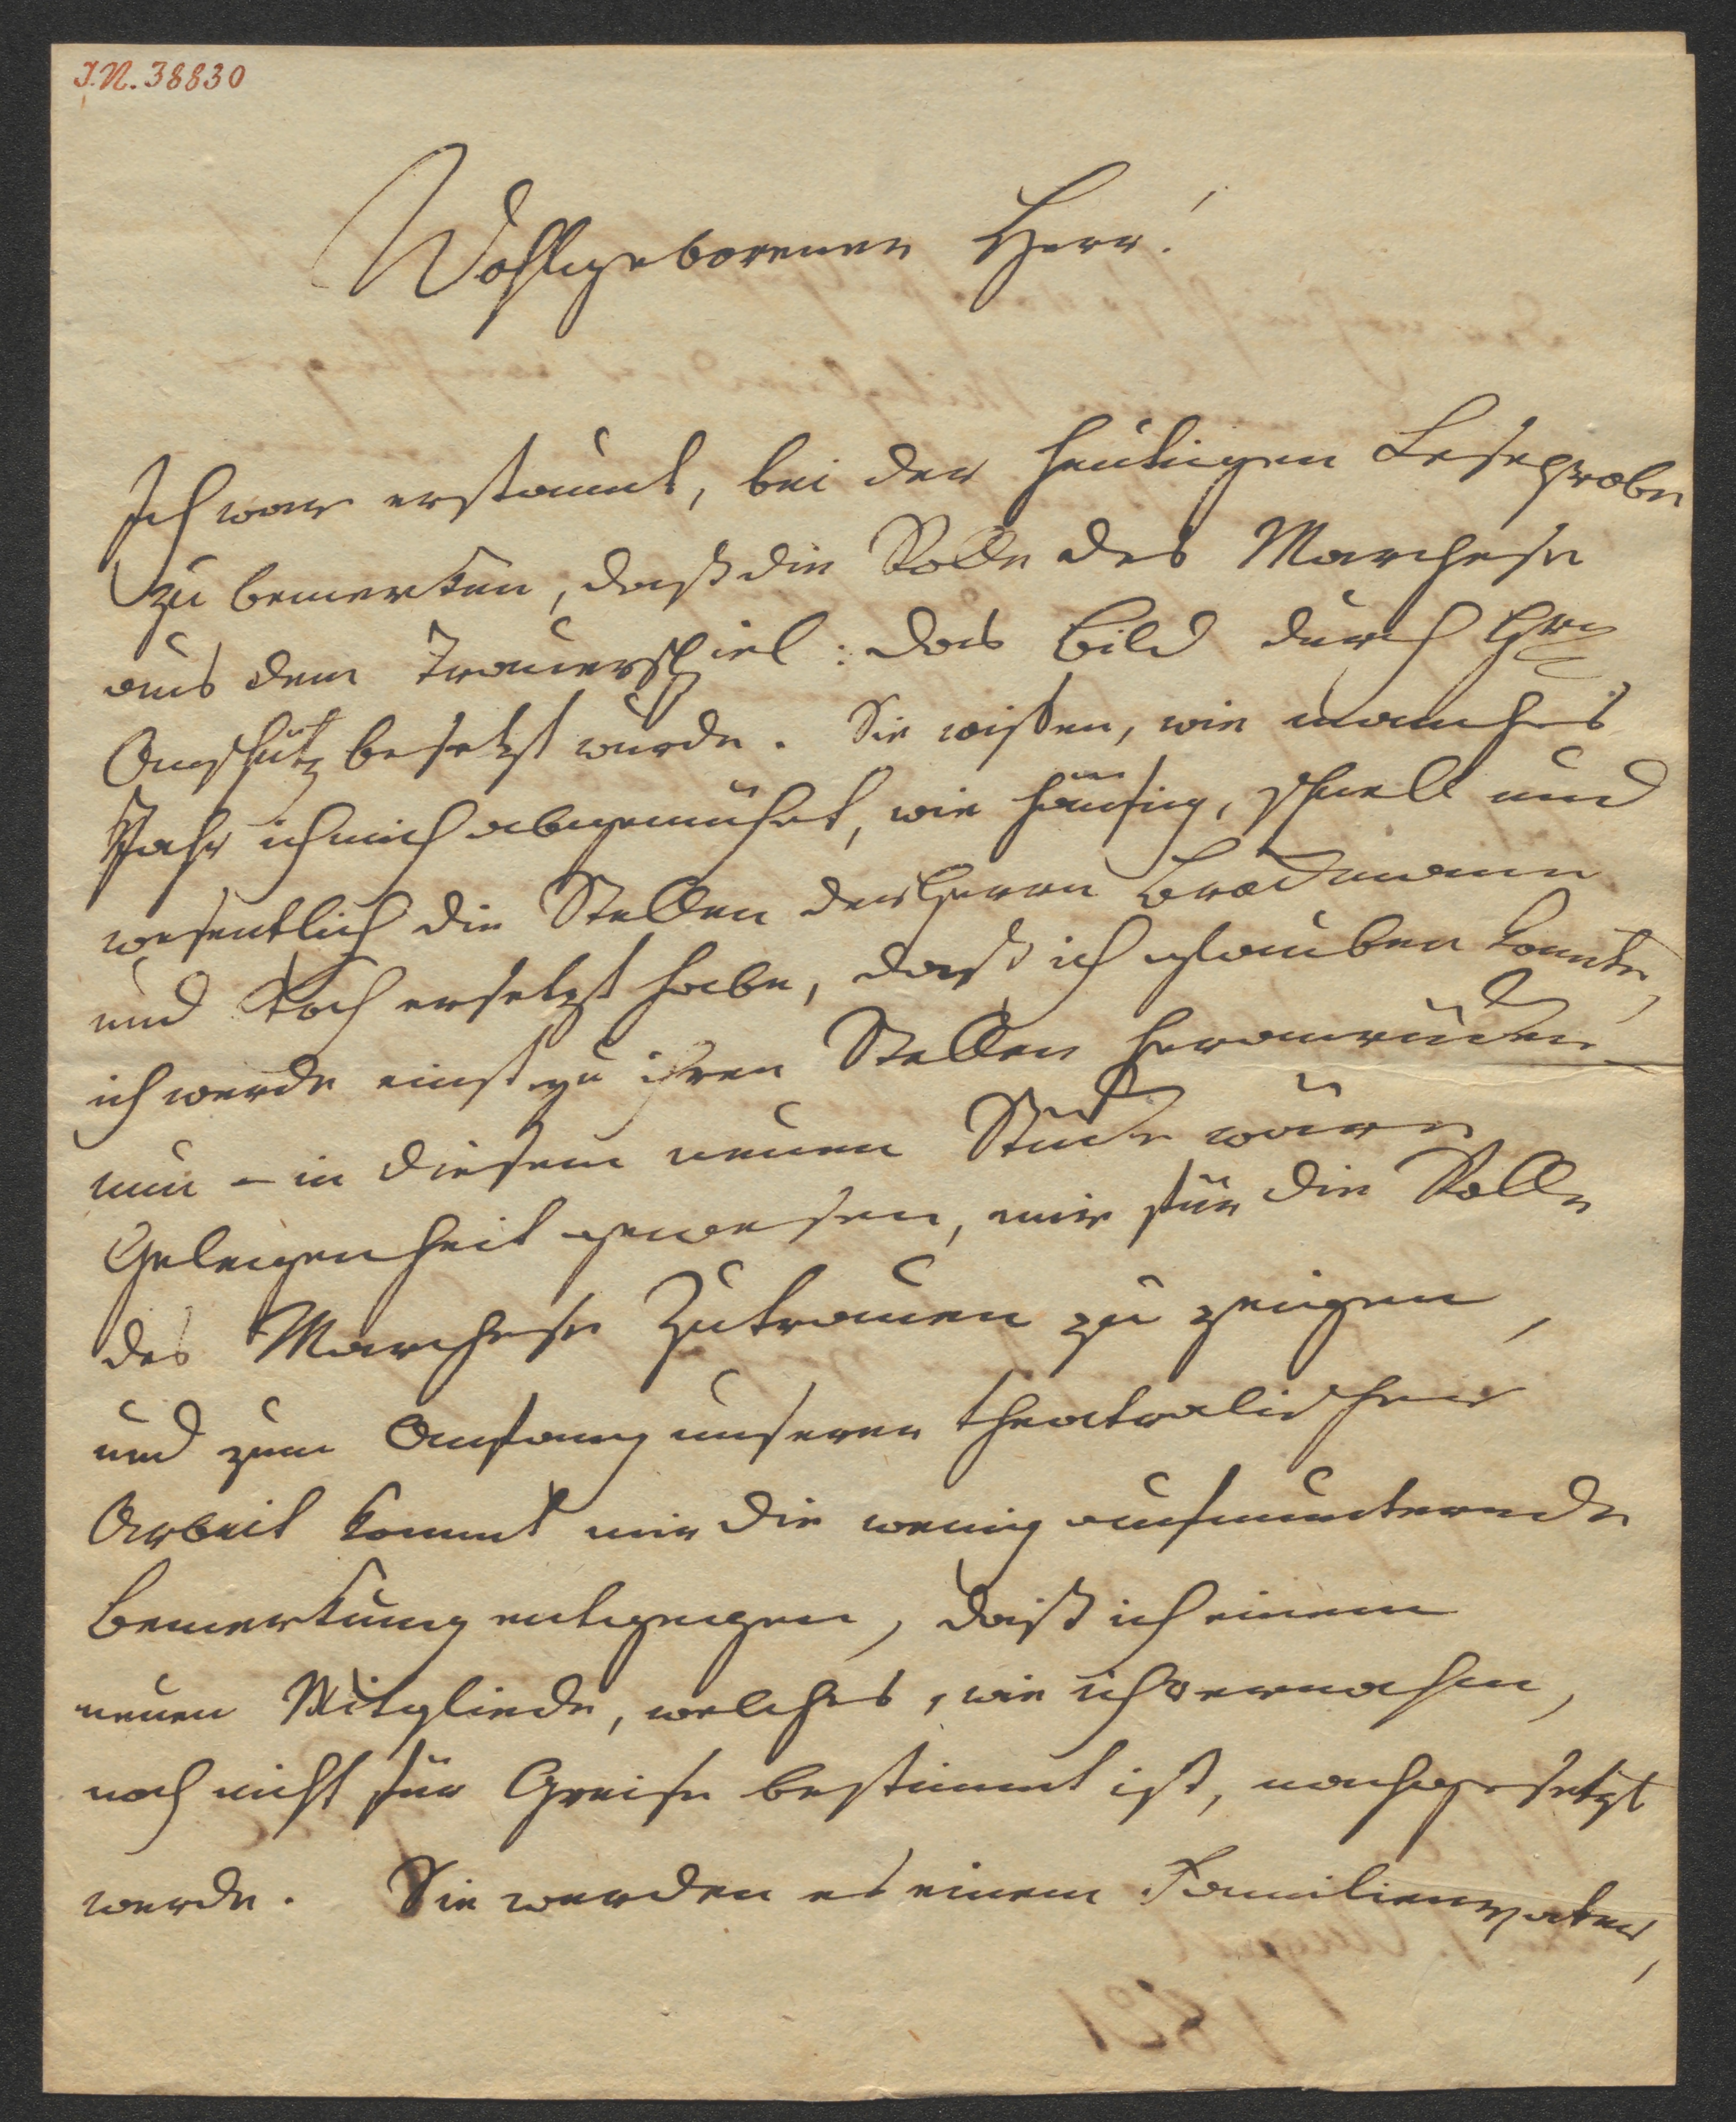 I.N. 38830
Wohlgeborener Herr!
Ich war erstaunt, bei der heutigen Leseprobe
zu bemerken, daß die Rolle des Marchese
aus dem Trauerspiel: das Bild durch Hrn
Anschütz besetzt wurde. Sie wissen, wie manches
Jahr ich mich abgemühet, wie häufig, schnell und
wesentlich die Stellen der Herren Brockmann
und Koch ersetzt habe, daß ich glauben konnte,
ich werde einst zu ihren Stellen heranrücken
nun – in diesem neuen Stücke wäre
Gelegenheit gewesen, mir für die Rolle
des Marchese Zutrauen zu zeigen,
und zum Anfang unserer theatralischen
Arbeit kommt mir die wenig aufmunternde
Bemerkung entgegen, daß ich einem
neuen Mitgliede, welches, wie ich vernahm,
noch nicht für Greise bestimmt ist, nachgesetzt
werde. Sie werden es einem Familienvater,